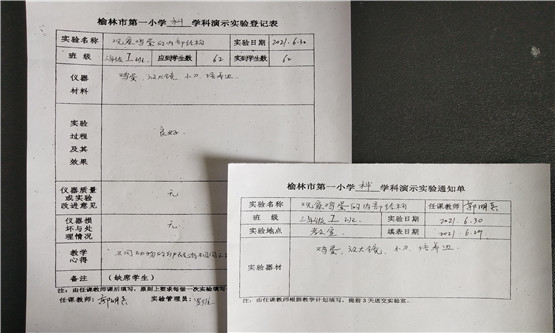 榆林市第一小学 科 学科演示实验登记表
实验名称 观察鸡蛋的内部结构 实验日期 2021.6.30
班 级 应到学生数 62 实到学生数 62
仪器材料 鸡蛋、放大镜、小刀、培养皿
实验过程及其效果 良好.
仪器质量或实验改进意见 无
仪器损坏与处理情况 无
教学心得
备注 （缺席学生）
注：由任课教师课后填写，原则上要求每做一次实验填写
任课教师： 实验管理员：
榆林市第一小学 科 学科演示实验通知单
实验名称 观察鸡蛋的内部结构 任课教师
班 级 实验日期 2021.6.30
实验地点 填表日期 2021.6.29
实验器材 鸡蛋、放大镜、小刀、培养皿
注：由任课教师根据教学计划填写，提前3天送交实验室。